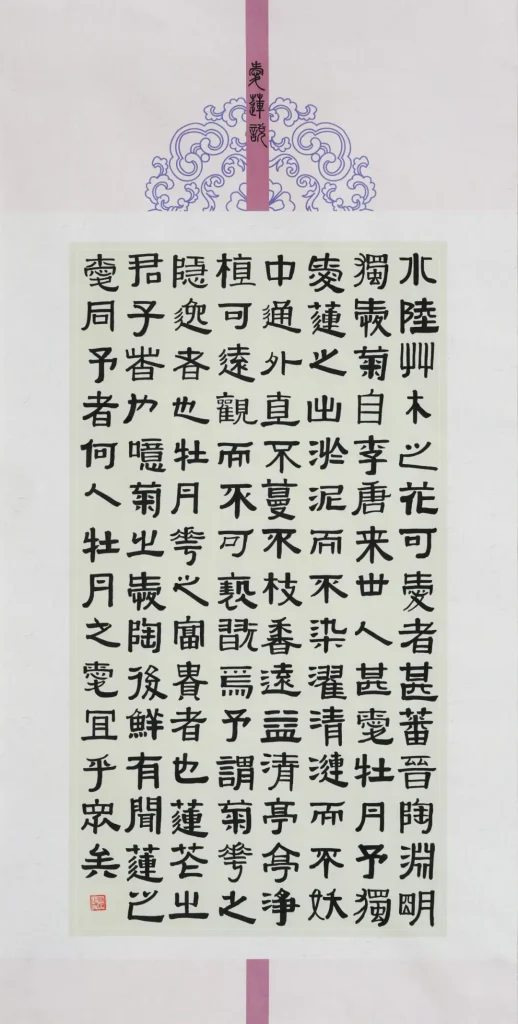 愛蓮說
水陸艸木之花可愛者甚蕃晉陶淵明
獨愛菊自李唐来世人甚愛牡丹予獨
愛蓮之出淤泥而不染濯清漣而不妖
中通外直不蔓不枝香遠益清亭亭淨
植可遠觀而不可褻翫焉予謂菊華之
隱逸者也牡丹華之富貴者也蓮花之
君子者也噫菊之愛陶後鮮有聞蓮之
愛同予者何人牡丹之愛宜乎眾矣